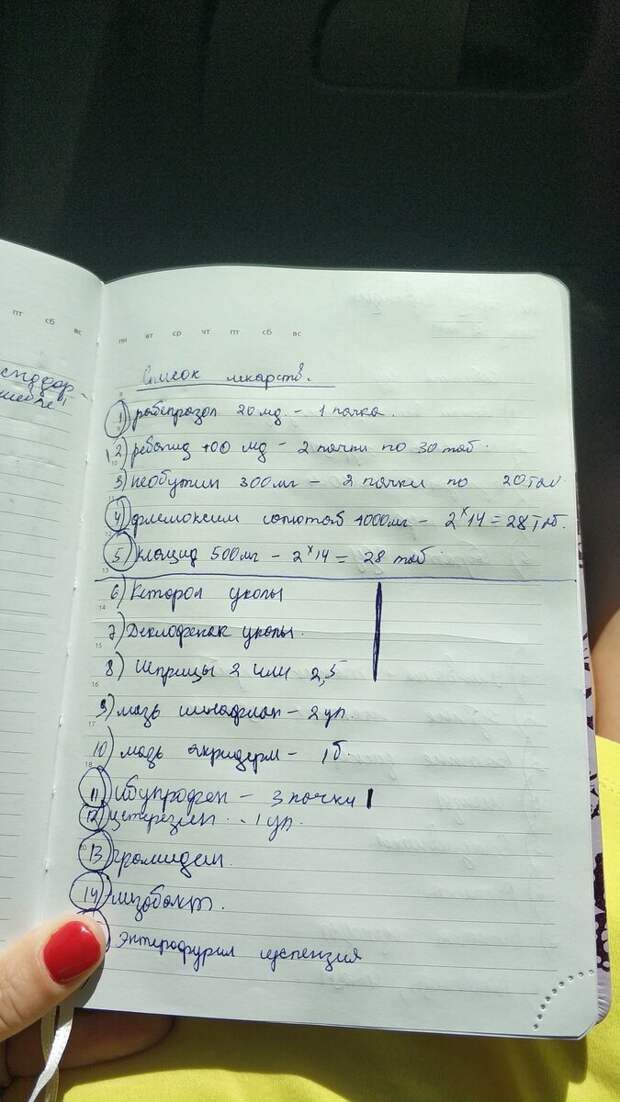 пт сб вс
пн вт ср чт пт сб вс
Список лекарств.
1) рабепразол 20 мд. - 1 пачка.
2) ребапид 100 мд - 2 пачки по 30 таб.
3) необутин 300мг - 2 пачки по 20 таб
4) флемоксим солютаб 1000мг - 2х14 = 28 таб.
5) клацид 500мг - 2х14 = 28 таб
6) Кеторол уколы
7) Диклофенак уколы.
8) Шприцы 2 или 2,5
9) мазь синафлан - 2 уп.
10) мазь акридерм - 1 б.
11) ибупрофен - 3 пачки
12) цетерезин - 1 уп.
13) грамидин.
14) лизобакт.
) энтерофурил суспензия